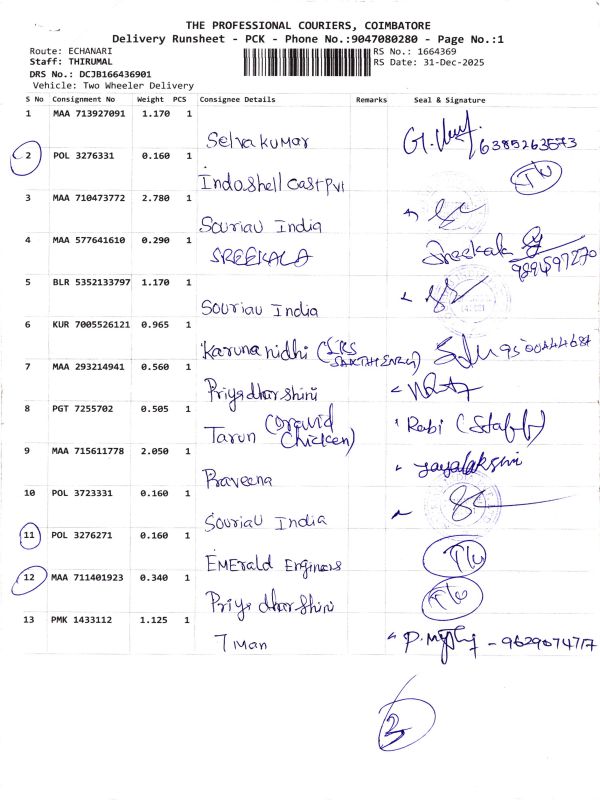 THE PROFESSIONAL COURIERS, COIMBATORE
Delivery Runsheet - PCK - Phone No.:9047080280 - Page No.:1
Route: ECHANARI
RS No.: 1664369
Staff: THIRUMAL
RS Date: 31-Dec-2025
DRS No.: DCJB166436901
Vehicle: Two Wheeler Delivery
S No Consignment No Weight PCS Consignee Details Remarks Seal & Signature
1 MAA 713927091 1.170 1
Selvakumar 6385263573
2 POL 3276331 0.160 1
Indoshell Cast Pvt
3 MAA 710473772 2.780 1
Souriau India
4 MAA 577641610 0.290 1
SREEKALA Sreekala
5 BLR 5352133797 1.170 1
Souriau India
6 KUR 7005526121 0.965 1
Karunanidhi
7 MAA 293214941 0.560 1
Priyadharshini
8 PGT 7255702 0.505 1
Tarun (Dravid Chicken) Rabi (Staff)
9 MAA 715611778 2.050 1
Praveena Jayalakshmi
10 POL 3723331 0.160 1
Souriau India
11 POL 3276271 0.160 1
EMErald Engineers
12 MAA 711401923 0.340 1
Priyadharshini
13 PMK 1433112 1.125 1
T man 9629074717